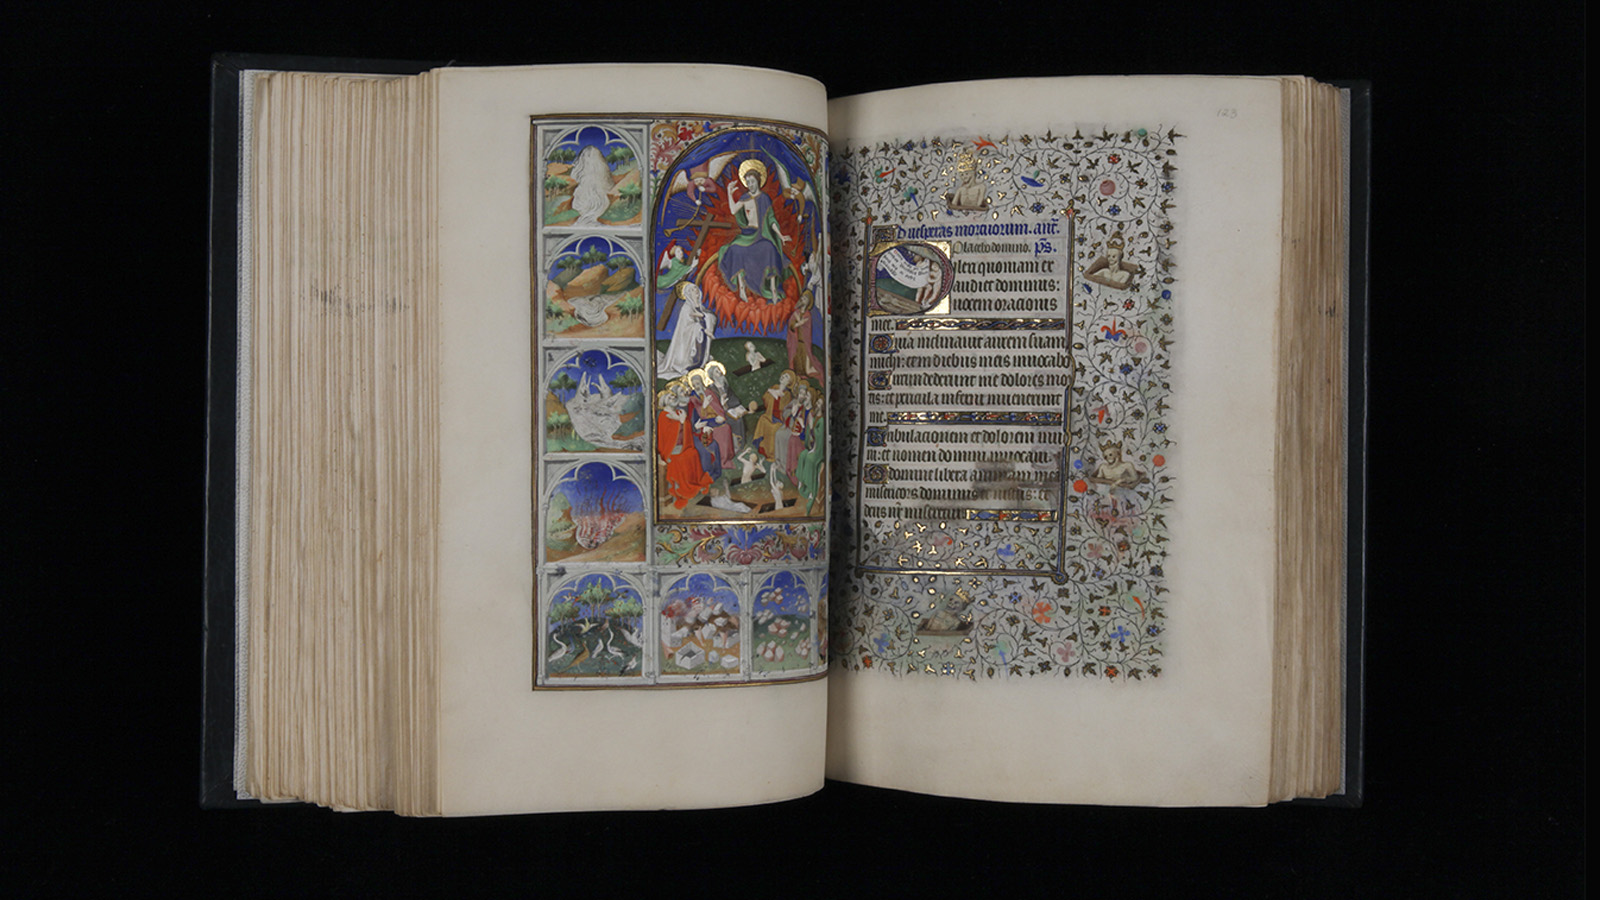 123
Ad vesperas mortuorum. ant.
Placebo domino. ps.
Dilexi quoniam ex
audiet dominus:
vocem orationis
mee.
Quia inclinavit aurem suam
michi: et in diebus meis invocabo
Circumdederunt me dolores mo
tis: et pericula inferni invenerunt
me.
Tribulacionem et dolorem inve
ni: et nomen domini invocavi.
O domine libera animam mea
misericors dominus et iustus: et
deus nr miseretur